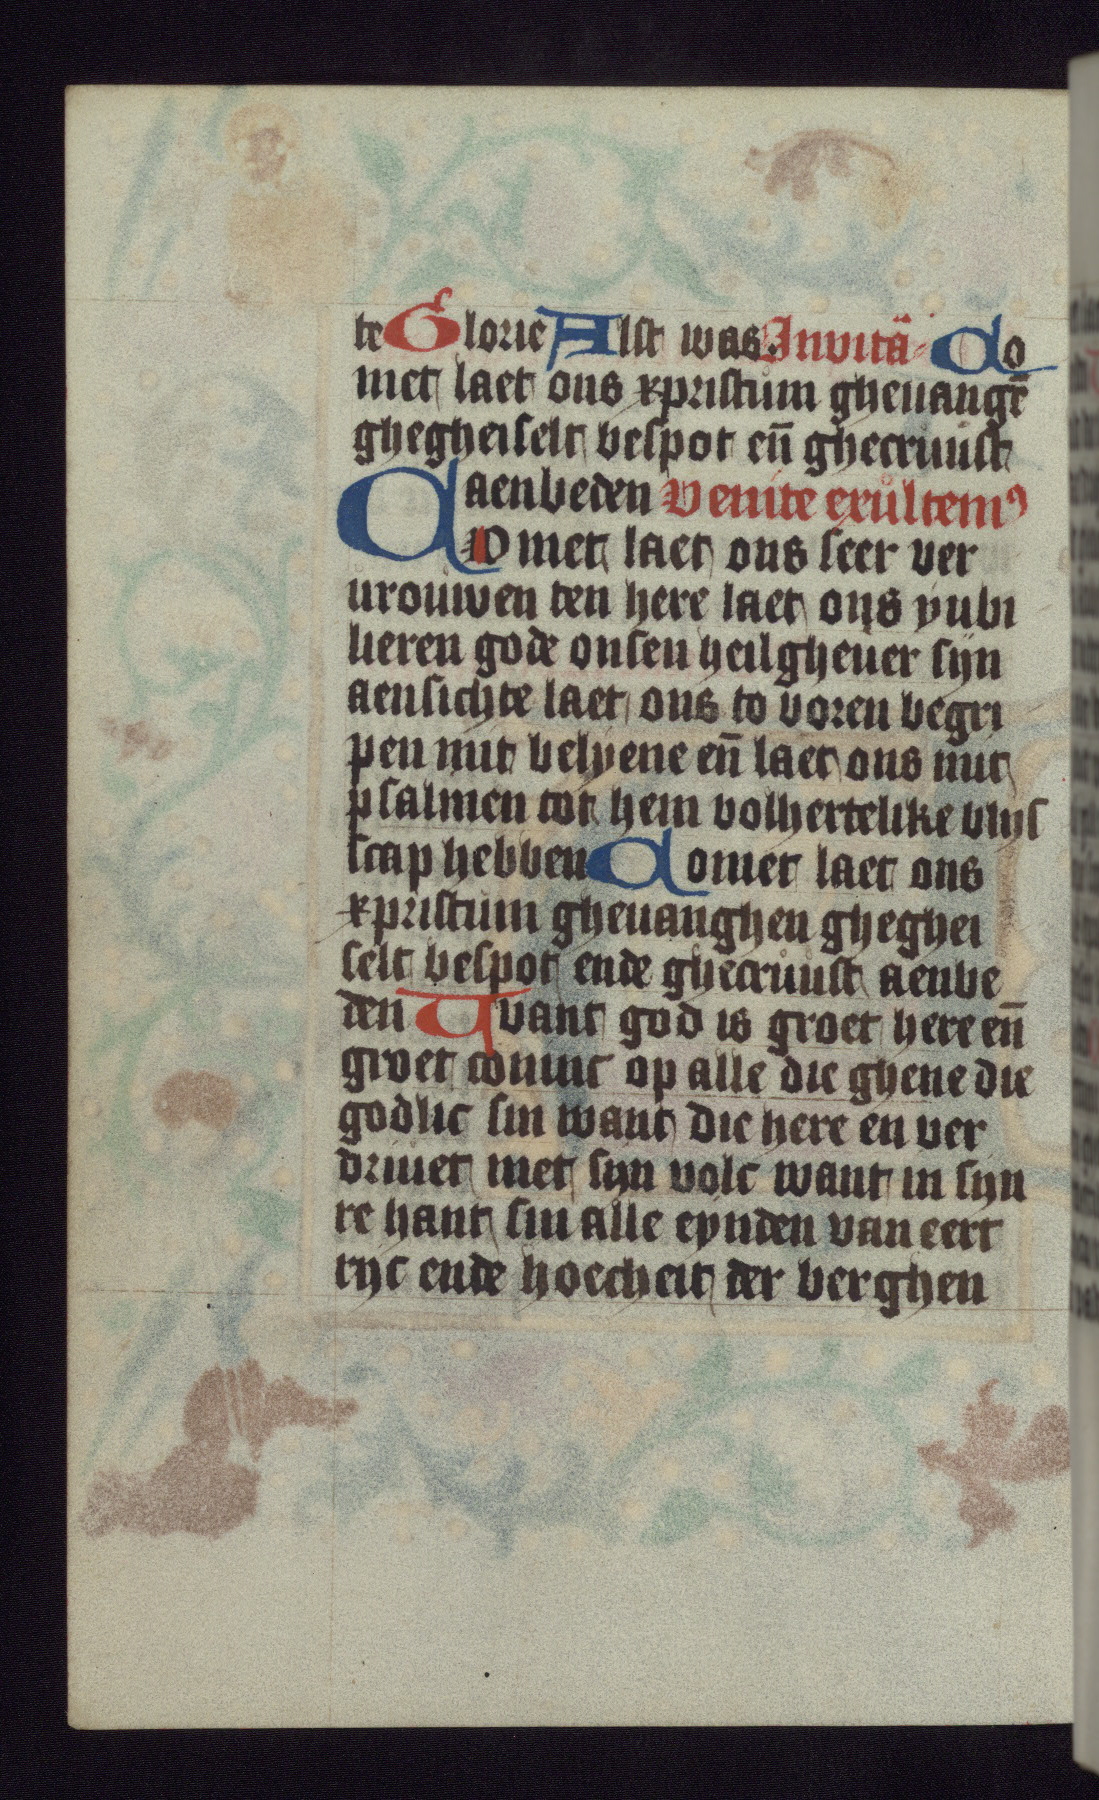 te Glorie Alst was. Invitā Co
met laet ons xpristum gheuangē
ghegheiselt bespot eñ ghecruust
aenbeden Venite exultemꝰ
COmet laet ons seer ver
urouwen ten here laet ons yubi
lieren gode onsen heilgheuer sijn
aensichte laet ons to voren begri
pen mit belyene eñ laet ons mit
psalmen tot hem volhertelike blijs
scap hebben Comet laet ons
xpristum gheuanghen gheghei
selt bespot ende ghecruust aenbe
den Want god is groet here eñ
groet coninc op alle die ghene die
godlic sin want die here en ver
driuet niet sijn volc want in sijn
re hant sin alle eynden van eert
rijc ende hoecheit der berghen